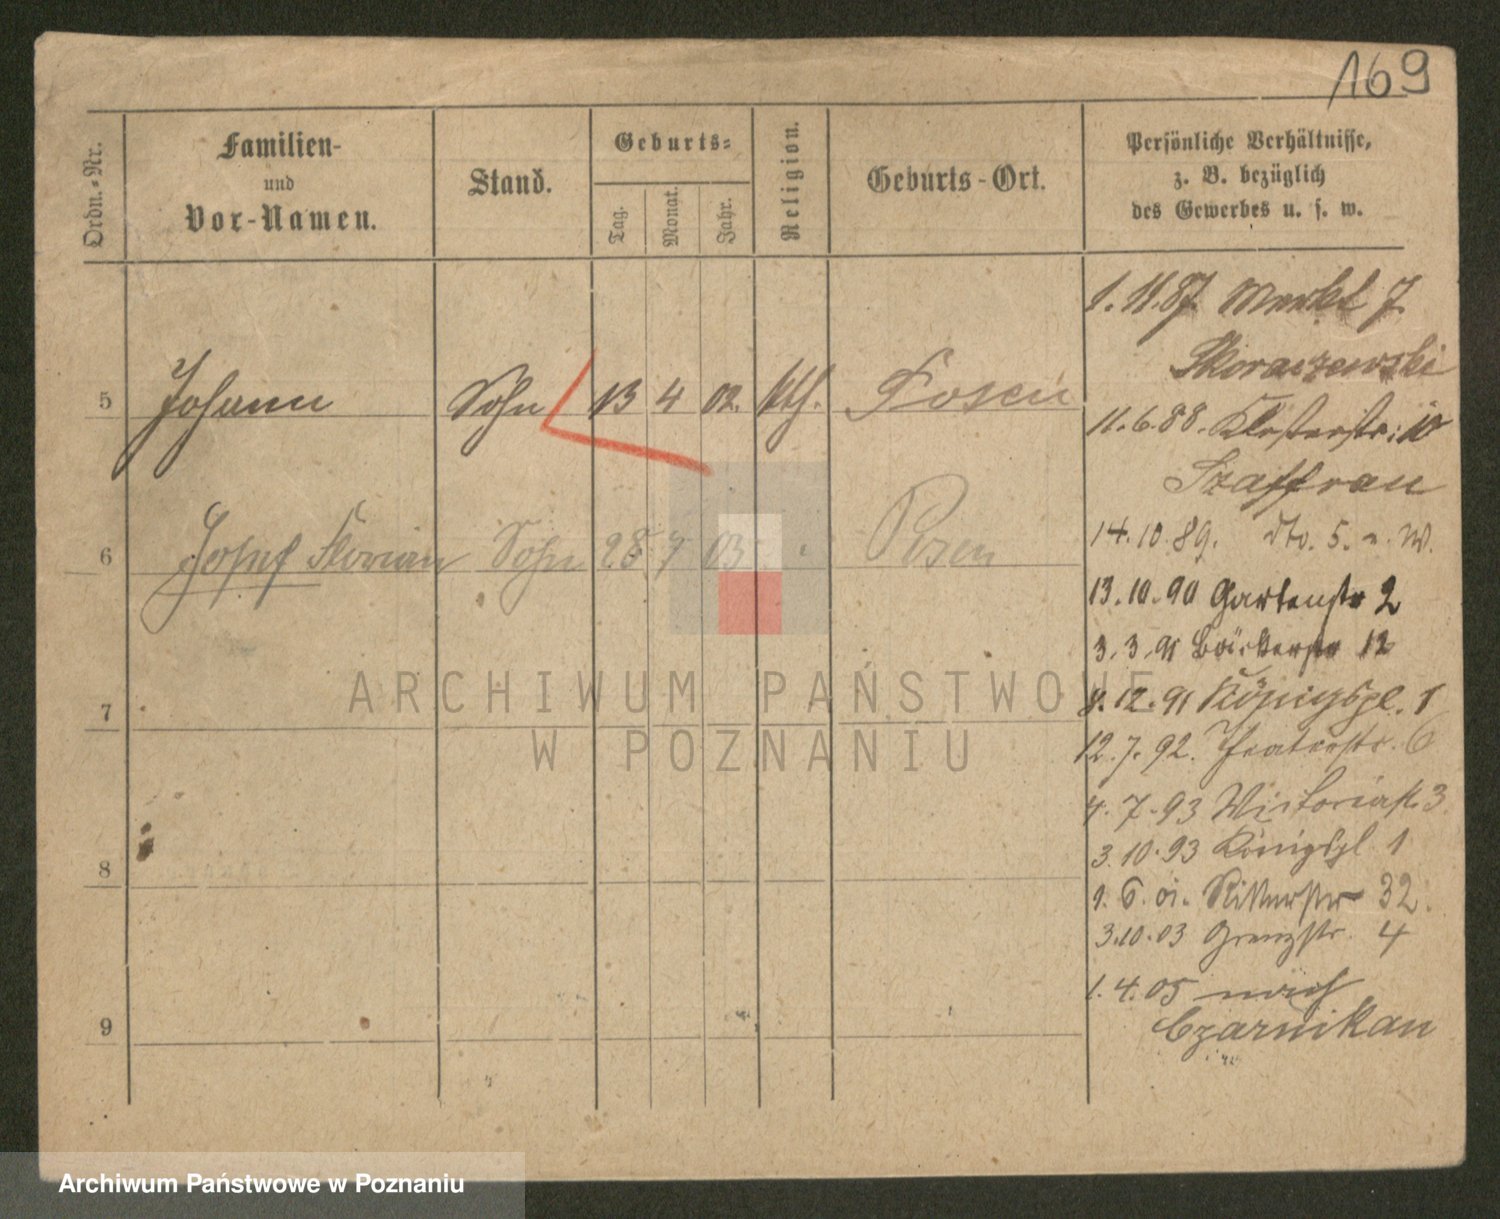 169
Ordn.-Nr.
Familien-
und
Vor-Namen.
Stand.
Geburts-
Tag.
Monat.
Jahr.
Religion.
Geburts-Ort.
Persönliche Verhältnisse,
z. B. bezüglich
des Gewerbes u. s. w.
1.11.87. Markt 7.
Skoraczewski
5 Johann Sohn 13 4 02. kth. Posen
11.6.88. Klosterstr. 10
Szaffran
14.10.89. dto. 5. n. W.
6 Josef Florian Sohn 28 7 03 Posen
13.10.90 Gartenstr 2
3.3.91 Bäckerstr 12
7
8.12.91 Königspl. 1
12.7.92. Theaterstr. 6
4.7.93 Victoriast. 3
3.10.93 Königspl 1
8
1.6.01. Ritterstr 32.
3.10.03 Grenzstr. 4
1.4.05 nach
Czarnikau
9
ARCHIWUM PAŃSTWOWE
W POZNANIU
Archiwum Państwowe w Poznaniu